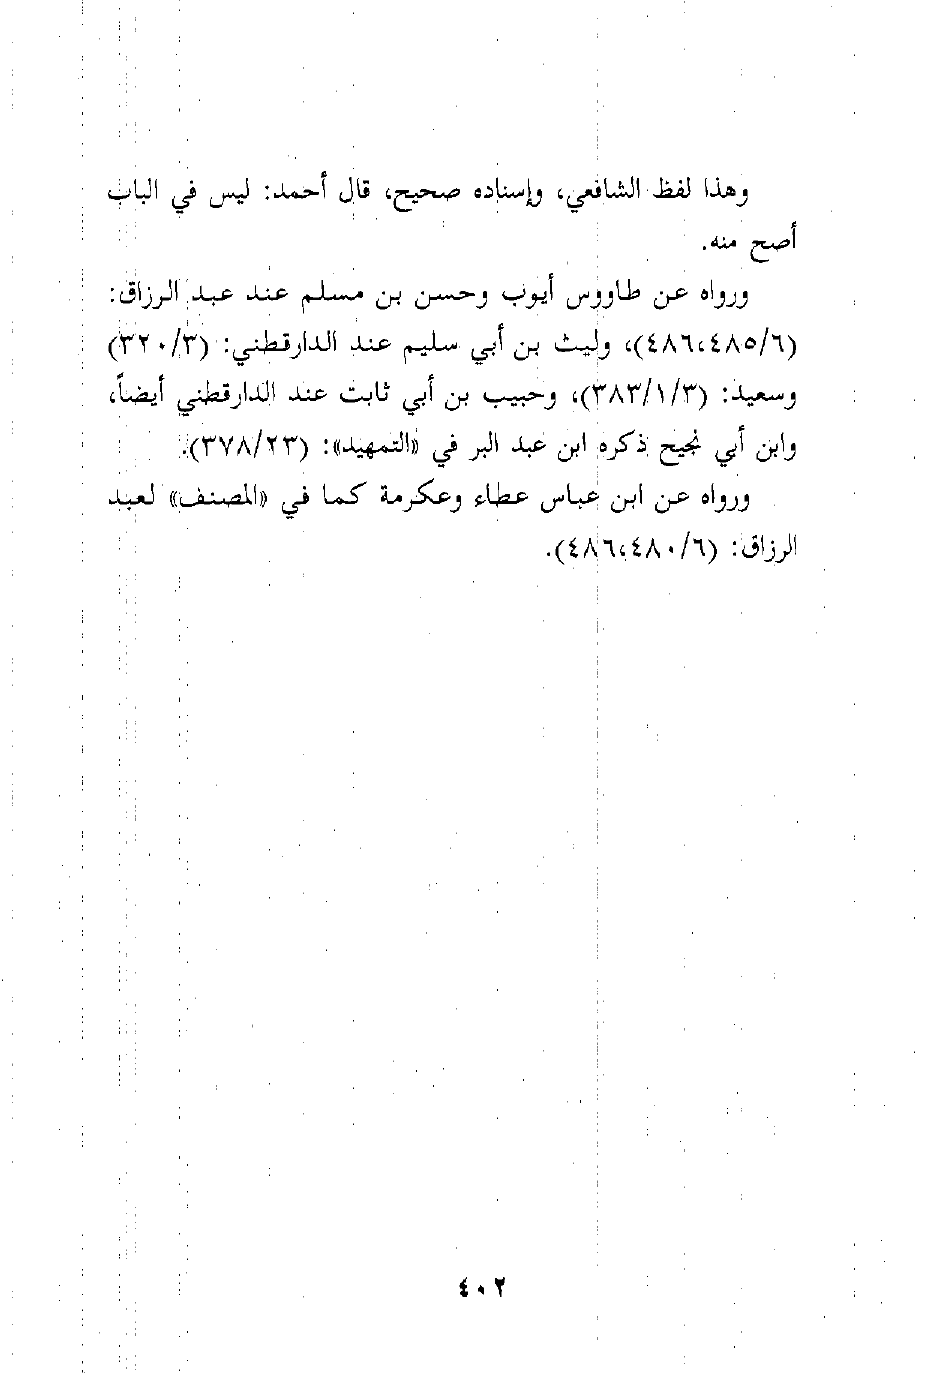 وهذا لفظ الشافعي، وإسناده صحيح، قال أحمد: ليس في الباب
أصح منه.
ورواه عن طاووس أيوب وحسن بن مسلم عند عبد الرزاق:
(٤٨٦،٤٨٥/٦)، وليث بن أبي سليم عند الدارقطني: (٣٢٠/٣)
وسعيد: (٣٨٣/١/٣)، وحبيب بن أبي ثابت عند الدارقطني أيضاً،
وابن أبي نجيح ذكره ابن عبد البر في «التمهيد»: (٣٧٨/٢٣).
ورواه عن ابن عباس عطاء وعكرمة كما في «المصنف» لعبد
الرزاق: (٤٨٦،٤٨٠/٦).
٤٠٢